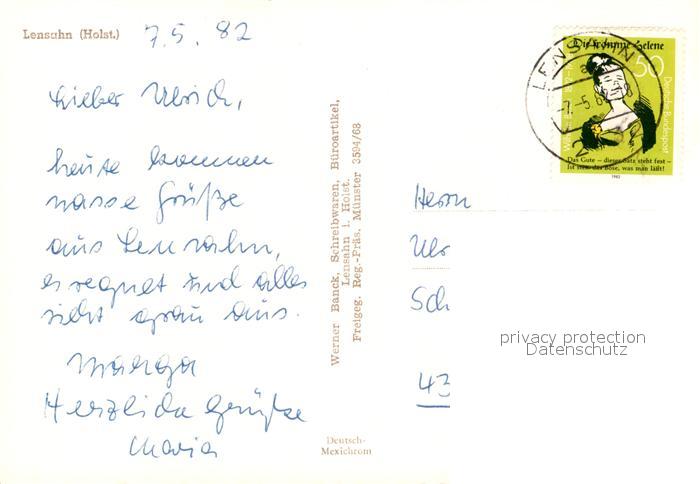 Lensahn (Holst.)
7.5.82
Lieber Ulrich,
heute kommen
nasse Grüße
aus Lensahn,
es regnet und alles
sieht grau aus.
Marga
Herzliche Grüße
Maria
Werner Banck, Schreibwaren, Büroartikel,
Lensahn i. Holst.
Freigeg. Reg.-Präs. Münster 3594/68
Deutsch-
Mexichrom
LENSAHN
Die fromme Helene
50
Deutsche Bundespost
Das Gute – dieser Satz steht fest –
Ist stets das Böse, was man läßt!
1982
Herrn
Ulr
Sch
43
privacy protection
Datenschutz